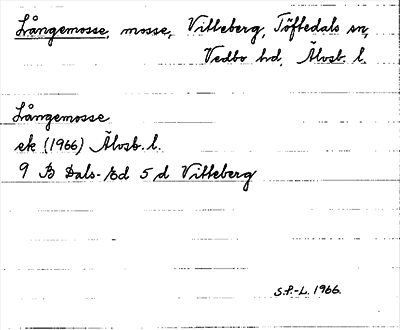 Långemosse, mosse, Vitleberg, Töftedals sn,
Vedbo hd, Älvsb. l.
Långemosse
ek (1966) Älvsb. l.
9 B Dals-Ed 5 d Vitleberg
S.P.-L. 1966.